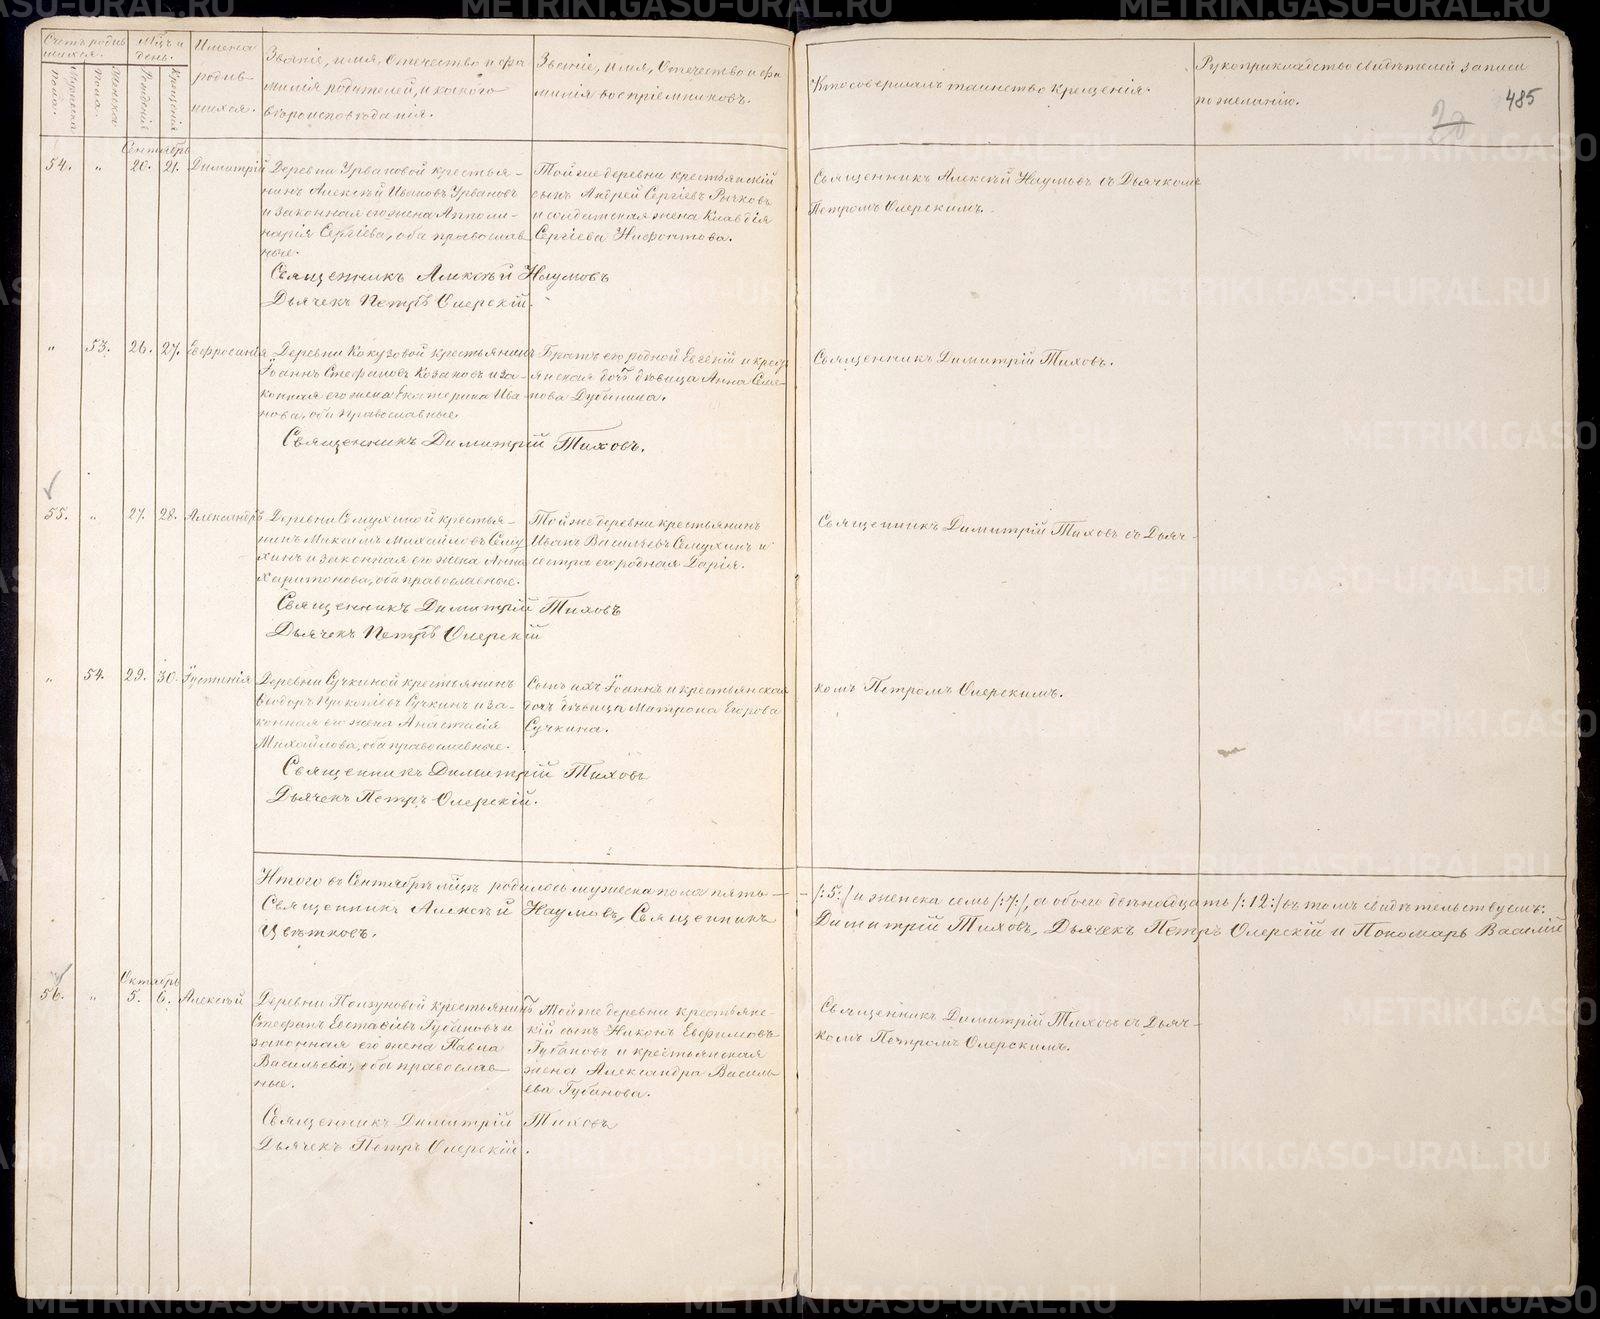 Счетъ родив
шихся.
Мужеска
пола.
Женска
пола.
Мѣц. и
день.
Рожденія
Крещенія
Имена
родив-
шихся.
Званіе, имя, Отечество и фа
милія родителей, и какого
вѣроисповѣданія.
Званіе, имя, Отечество и фа
милія воспріемниковъ.
Кто совершалъ таинство крещенія.
Рукоприкладство свидѣтелей записи
по желанію.
485
Сентябрь
54. „ 20. 21. Димитрій
Деревни Урвановой крестья-
нинъ Алексѣй Ивановъ Урвановъ
и законная его жена Аполи-
нарія Сергіева, оба православ
ные.
Тойже деревни крестьянскій
сынъ Андрей Сергіевъ Рычковъ
и солдатская жена Клавдія
Сергіева Нифонтова.
Священникъ Алексѣй Наумовъ съ Дьячкомъ
Петромъ Олерскимъ.
Священникъ Алексѣй Наумовъ
Дьячекъ Петръ Олерскій.
„ 53. 26. 27. Евфросинія
Деревни Кокузовой крестьянинъ
Іоаннъ Стефановъ Козаковъ и за-
конная его жена Екатерина Ива-
нова, оба православные.
Братъ его родной Евгеній и крест
янская дочь дѣвица Анна Семе-
нова Дубинина.
Священникъ Димитрій Тиховъ.
Священникъ Димитрій Тиховъ.
55. „ 27. 28. Александръ
Деревни Семухиной крестья-
нинъ Максимъ Михайловъ Сему
хинъ и законная его жена Анна
Харитонова, оба православные.
Тойже деревни крестьянинъ
Иванъ Васильевъ Семухинъ и
сестра его родная Дарія.
Священникъ Димитрій Тиховъ съ Дьяч-
Священникъ Димитрій Тиховъ
Дьячекъ Петръ Олерскій
„ 54. 29. 30. Іустинія
Деревни Сучкиной крестьянинъ
Ѳеодоръ Прокопіевъ Сучкинъ и за-
конная его жена Анастасія
Михайлова, оба православные.
Сынъ ихъ Іоаннъ и крестьянская
дочь дѣвица Матрона Егорова
Сучкина.
комъ Петромъ Олерскимъ.
Священникъ Димитрій Тиховъ
Дьячекъ Петръ Олерскій.
Итого въ Сентябрѣ мѣцѣ родилось мужеска пола пять — /:5:/ и женска семь /:7:/, а обоего двѣнадцать /:12:/ въ томъ свидѣтельствуемъ:
Священникъ Алексѣй Наумовъ, Священникъ Димитрій Тиховъ, Дьячекъ Петръ Олерскій и Пономарь Василій
Цвѣтковъ.
Октябрь
56. „ 5. 6. Алексѣй
Деревни Ползуновой крестьянинъ
Стефанъ Евстафіевъ Губановъ и
законная его жена Павла
Васильева, оба православ-
ные.
Тойже деревни крестьянс-
кій сынъ Никонъ Евфимовъ
Губановъ и крестьянская
жена Александра Василь-
ева Губанова.
Священникъ Димитрій Тиховъ съ Дьяч-
комъ Петромъ Олерскимъ.
Священникъ Димитрій Тиховъ
Дьячекъ Петръ Олерскій.
METRIKI.GASO-URAL.RU